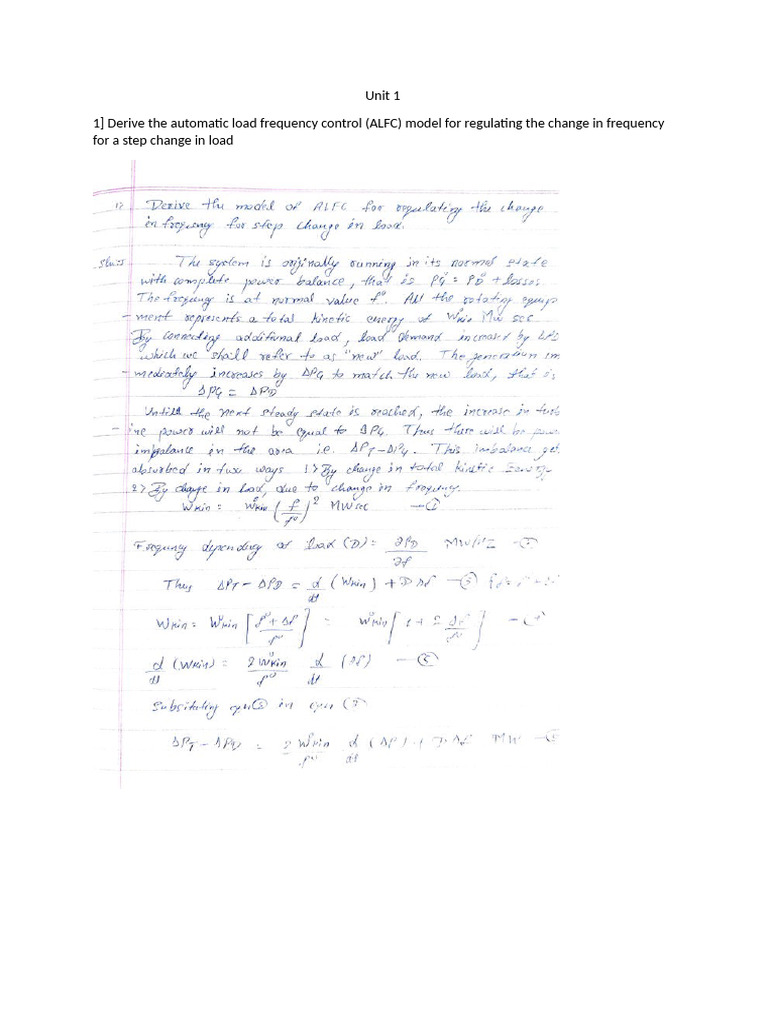 Unit 1
1] Derive the automatic load frequency control (ALFC) model for regulating the change in frequency
for a step change in load
1> Derive the model of ALFC for regulating the change
in frequny for step change in load.
The system is originally running in its normal state
with complete power balance, that is PG° = PD° + losses.
The frequny is at normal value f°. All the rotating equip
- ment represents a total kinetic energy of W°kin MW sec
By connecting additional load, load demand increased by
which we shall refer to as "new" load. The generation im
- mediately increases by ΔPG to match the new load, that is
ΔPG = ΔPD
Untill the next steady state is reached, the increase in turb
- ine power will not be equal to ΔPG. Thus there will be pow
imbalance in the area i.e. ΔPT-ΔPG. This imbalance get
absorbed in two ways 1> By change in total Kinetic Energy
2> By change in load, due to change in frequny.
Wkin = W°kin (f/f°)² MW sec —①
Frequny depending of load (D) = ∂PD/∂f MW/HZ —②
Thus ΔPT - ΔPD = d/dt (Wkin) + D Δf —③
Wkin = W°kin [f°+Δf/f°] = W°kin [1 + 2Δf/f°] —④
d/dt (Wkin) = 2W°kin/f° d/dt (Δf) —⑤
Subsituting eqn⑤ in eqn
ΔPT - ΔPD = 2W°kin/f° d/dt (Δf) + D Δf MW